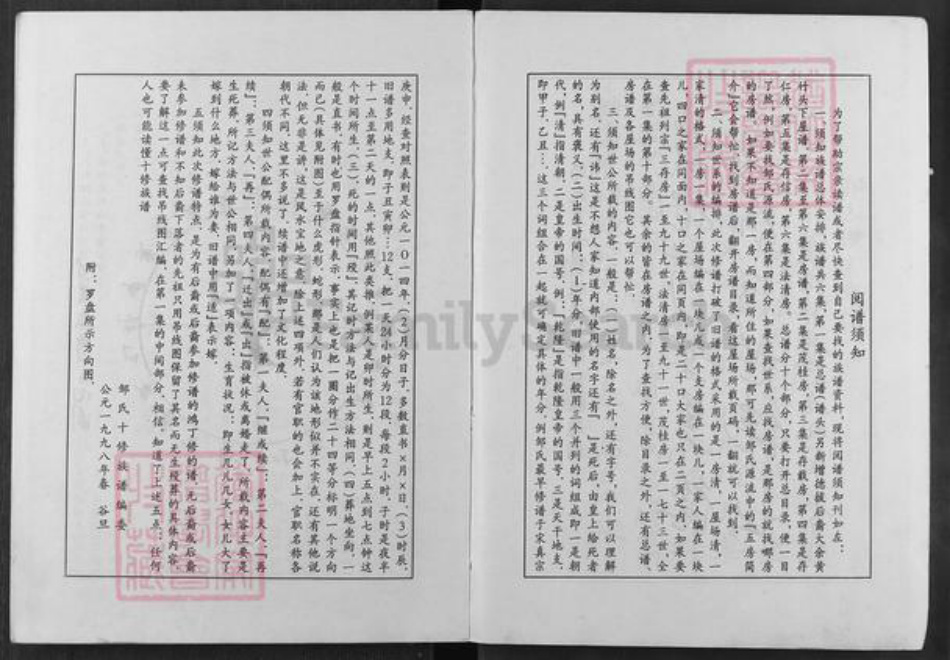 阅谱须知
为了帮助宗亲读谱或者尽快查到自己要找的族谱资料，现将阅谱须知刊如在：
一、须知族谱总体安排，族谱共六集，第一集是总谱（谱头）另新增德赦后裔大余黄
竹头下屋谱。第二集至第六集是房谱，第二集是茂桂房，第三集是存载房，第四集是存
仁房，第五集是存信房，第六集是法清房。总谱分十个部分，只要打开总目录，便一目
了然。例如要找邹氏源流，便在第四部分，如果查找世系，应找房谱，是那房的就找哪房
的房谱，如果不知道是那一房，而知道所住的屋场，那可先读邹氏源流中的『五房简
介』它会帮忙，找到房谱后，翻开房谱目录，看这屋场所载页码，一翻就可以找到。
二、须知世系的编排，此次修谱打破了旧谱的格式采用的是一房清，一屋场清，一
家清的格式，一房一集，一个屋场编在一块儿或一个支房编在一块儿，一家人编在一块
儿，四口之家在同面内，十口之家在同页内，即是二十口大家也只在二页之内，如果要
查先祖列宗『三存房』一至九十九世，法清房一至九十一世，茂桂房一至一七十三世，全
在第一集的第十部分。其余的皆在房谱之内，为了查找方便，除目录之外，还有总谱、
房谱及各屋场的吊线图它也可以帮忙。
三、须知世公所载的内容，一般是：（一）姓名，除名之外，还有字号，我们可以理解
为别名，还有『讳』这是不想人家知道内部使用的名字还有『 』是死后，由皇上给死者
的名，具有褒义，（二）出生时间：（1）年分，旧谱中一般用三个并列的词组成即一是朝
代，例『清』指清朝，二是皇帝的国号，例：『乾隆』是指乾隆皇帝的国号，三是天干地支，
即甲子、乙丑…这三个词组合在一起就可确定具体的年分，例邹氏最早修谱于宋真宗
庚申，经查对照表则是公元一0一四年，（2）月分日子，多数直书×月××日，（3）时辰，
旧谱多用地支，即子丑寅卯…12支，把一天24小时分为12段，每段2小时，子时是夜半
十一点至第二天的一点，其他照此类推，例某人是卯时所生，则是早上五点到七点钟这
个时间所生，（三），死的时间用『殁』，其记时方法与记出生方法相同，（四）葬地坐向，一
般是直书，有时也用罗盘指针表示，事实上也是把一圈分作二十四等分标明一个方向
而已（具体见附图）至于什么虎形，蛇形，那是人们认为该地形似并不实在，还有其他说
法，但无非是讲，这是风水宝地之意，除上述四项外，若有官职的也会加上，官职名称各
朝代不同，这里不多说了，续谱中还增加了文化程度。
四须知世公配偶所载内容，配偶有『配』：第一夫人，『继或续』：第二夫人『再
续』：第三夫人，『再』：第四夫人，还出『或』『出』指被休或离婚走了，所载内容主要是
生死葬，所记方法与世公相同，另加了二项内容：生育状况：即生几儿几女，女儿大了
嫁到什么地方，嫁给谁为妻，旧谱中用『适』表示嫁。
五须知此次修谱特点，是为有后裔或后裔参加修谱的鸿丁修的谱，无后裔或后裔
未参加修谱和不知后裔下落者的先祖只用吊线图保留了其名而无生殁葬的具体内容，
要了解这一点可查找吊线图汇编，在第一集的中间部分，相信，知道了上述五点：任何
人也可能读懂十修族谱
邹氏十修族谱编委
公元一九九八年春 谷旦
附：罗盘所示方向图。
FamilySearch